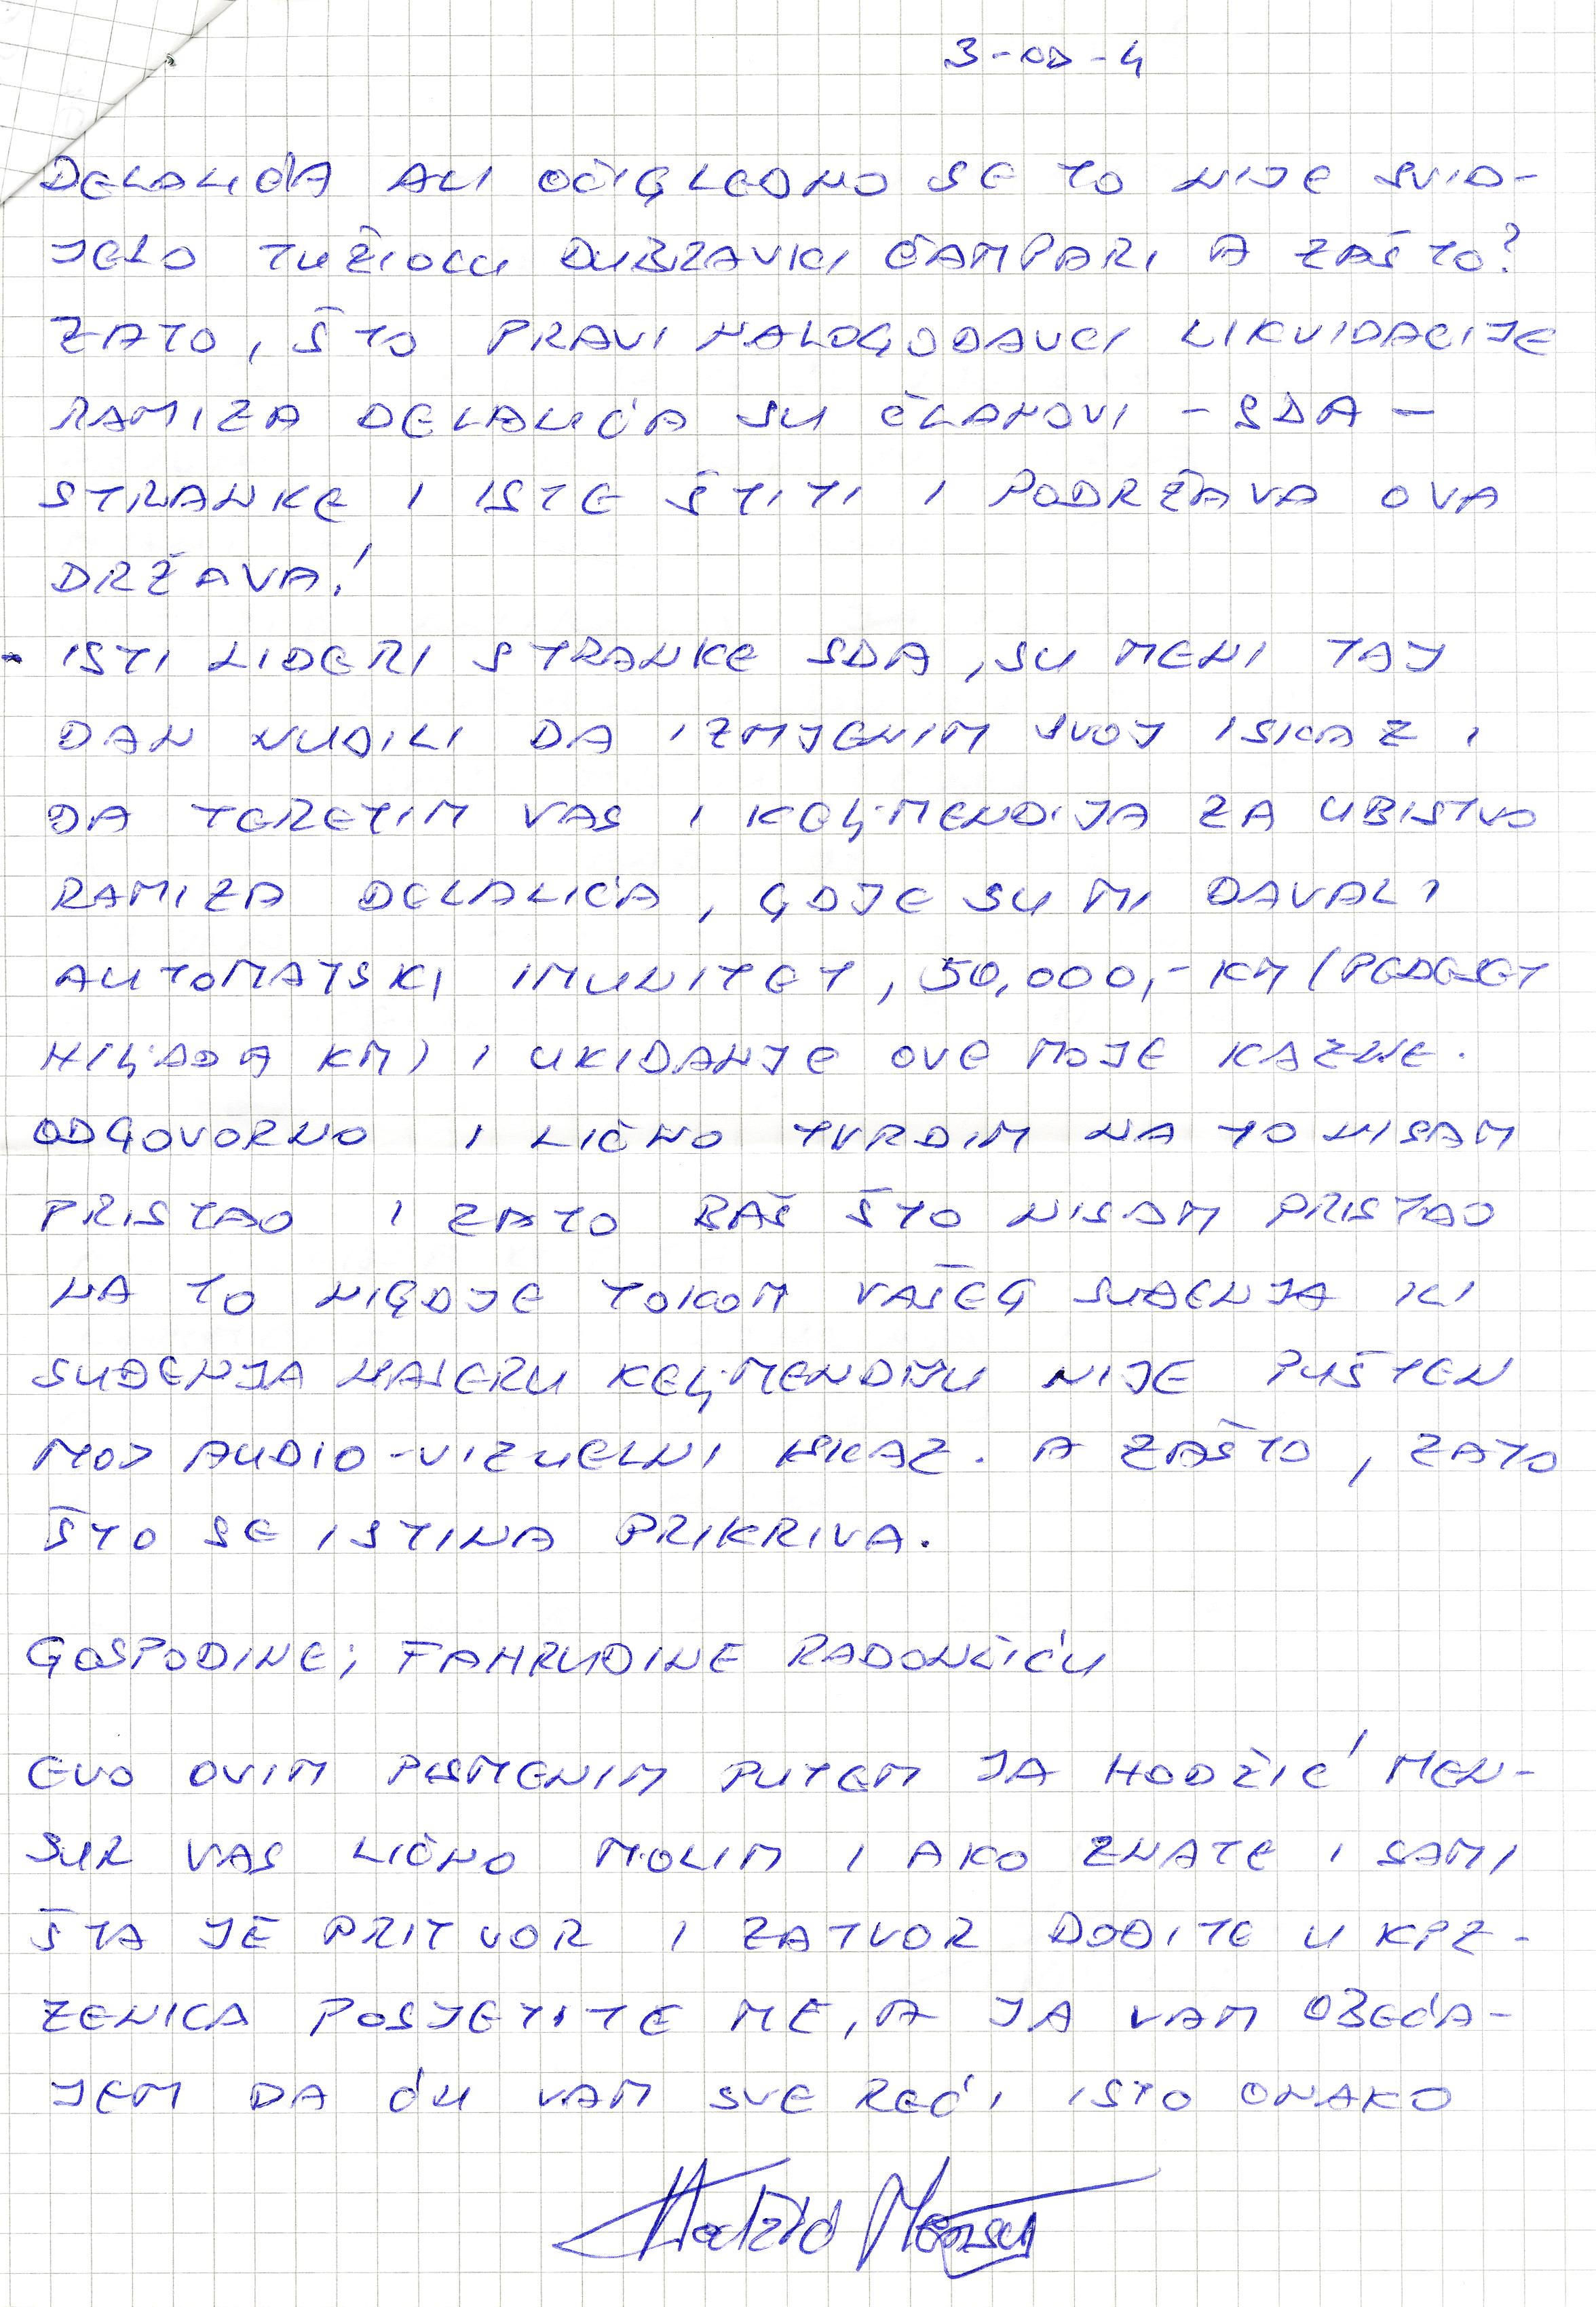 3-OD-4
DELALIĆA ALI OČIGLEDNO SE TO NIJE SVID-
JELO TUŽIOCU DUBRAVKI ČAMPARI A ZAŠTO?
ZATO, ŠTO PRAVI NALOGODAVCI LIKVIDACIJE
RAMIZA DELALIĆA SU ČLANOVI - SDA -
STRANKE I ISTE ŠTITI I PODRŽAVA OVA
DRŽAVA!
- ISTI LIDERI STRANKE SDA, SU MENI TAJ
DAN NUDILI DA IZMJENIM SVOJ ISKAZ I
DA TERETIM VAS I KELJMENDIJA ZA UBISTVO
RAMIZA DELALIĆA, GDJE SU MI DAVALI
AUTOMATSKI IMUNITET, 50,000,- KM (PEDESET
HILJADA KM) I UKIDANJE OVE MOJE KAZNE.
ODGOVORNO I LIČNO TVRDIM NA TO NISAM
PRISTAO I ZATO BAŠ ŠTO NISAM PRISTAO
NA TO NIGDJE TOKOM VAŠEG SUĐENJA ILI
SUĐENJA NASERU KELJMENDIJU NIJE PUŠTEN
MOJ AUDIO-VIZUELNI ISKAZ. A ZAŠTO, ZATO
ŠTO SE ISTINA PRIKRIVA.
GOSPODINE; FAHRUDINE RADONČIĆU
EVO OVIM PISMENIM PUTEM JA HODŽIĆ MEN-
SUR VAS LIČNO MOLIM I AKO ZNATE I SAMI
ŠTA JE PRITVOR I ZATVOR DOĐITE U KPZ-
ZENICA POSJETITE ME, A JA VAM OBEĆA-
JEM DA ĆU VAM SVE REĆI ISTO ONAKO
Hodžić Mensur